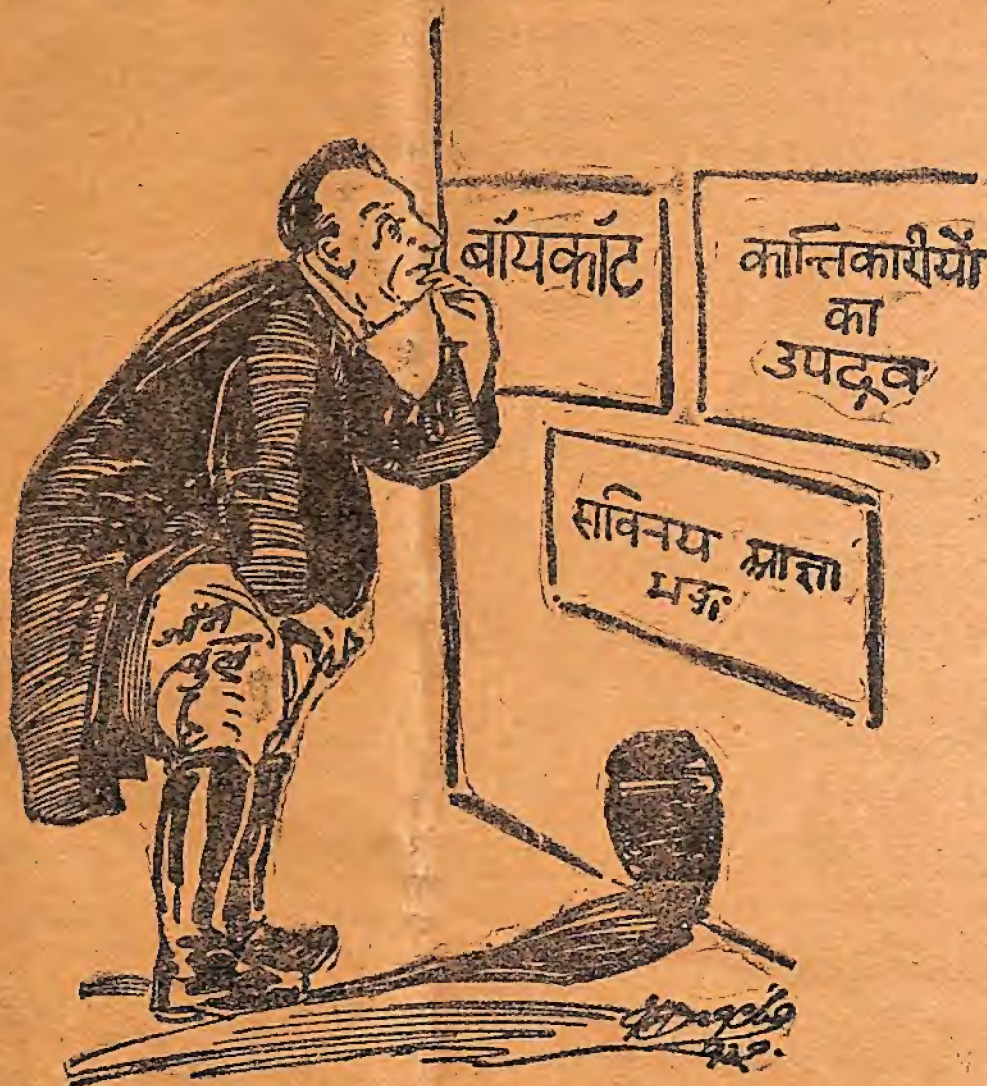 बॉयकॉट
क्रान्तिकारीयों
का
उपद्रव
सविनय आज्ञा
भङ्ग